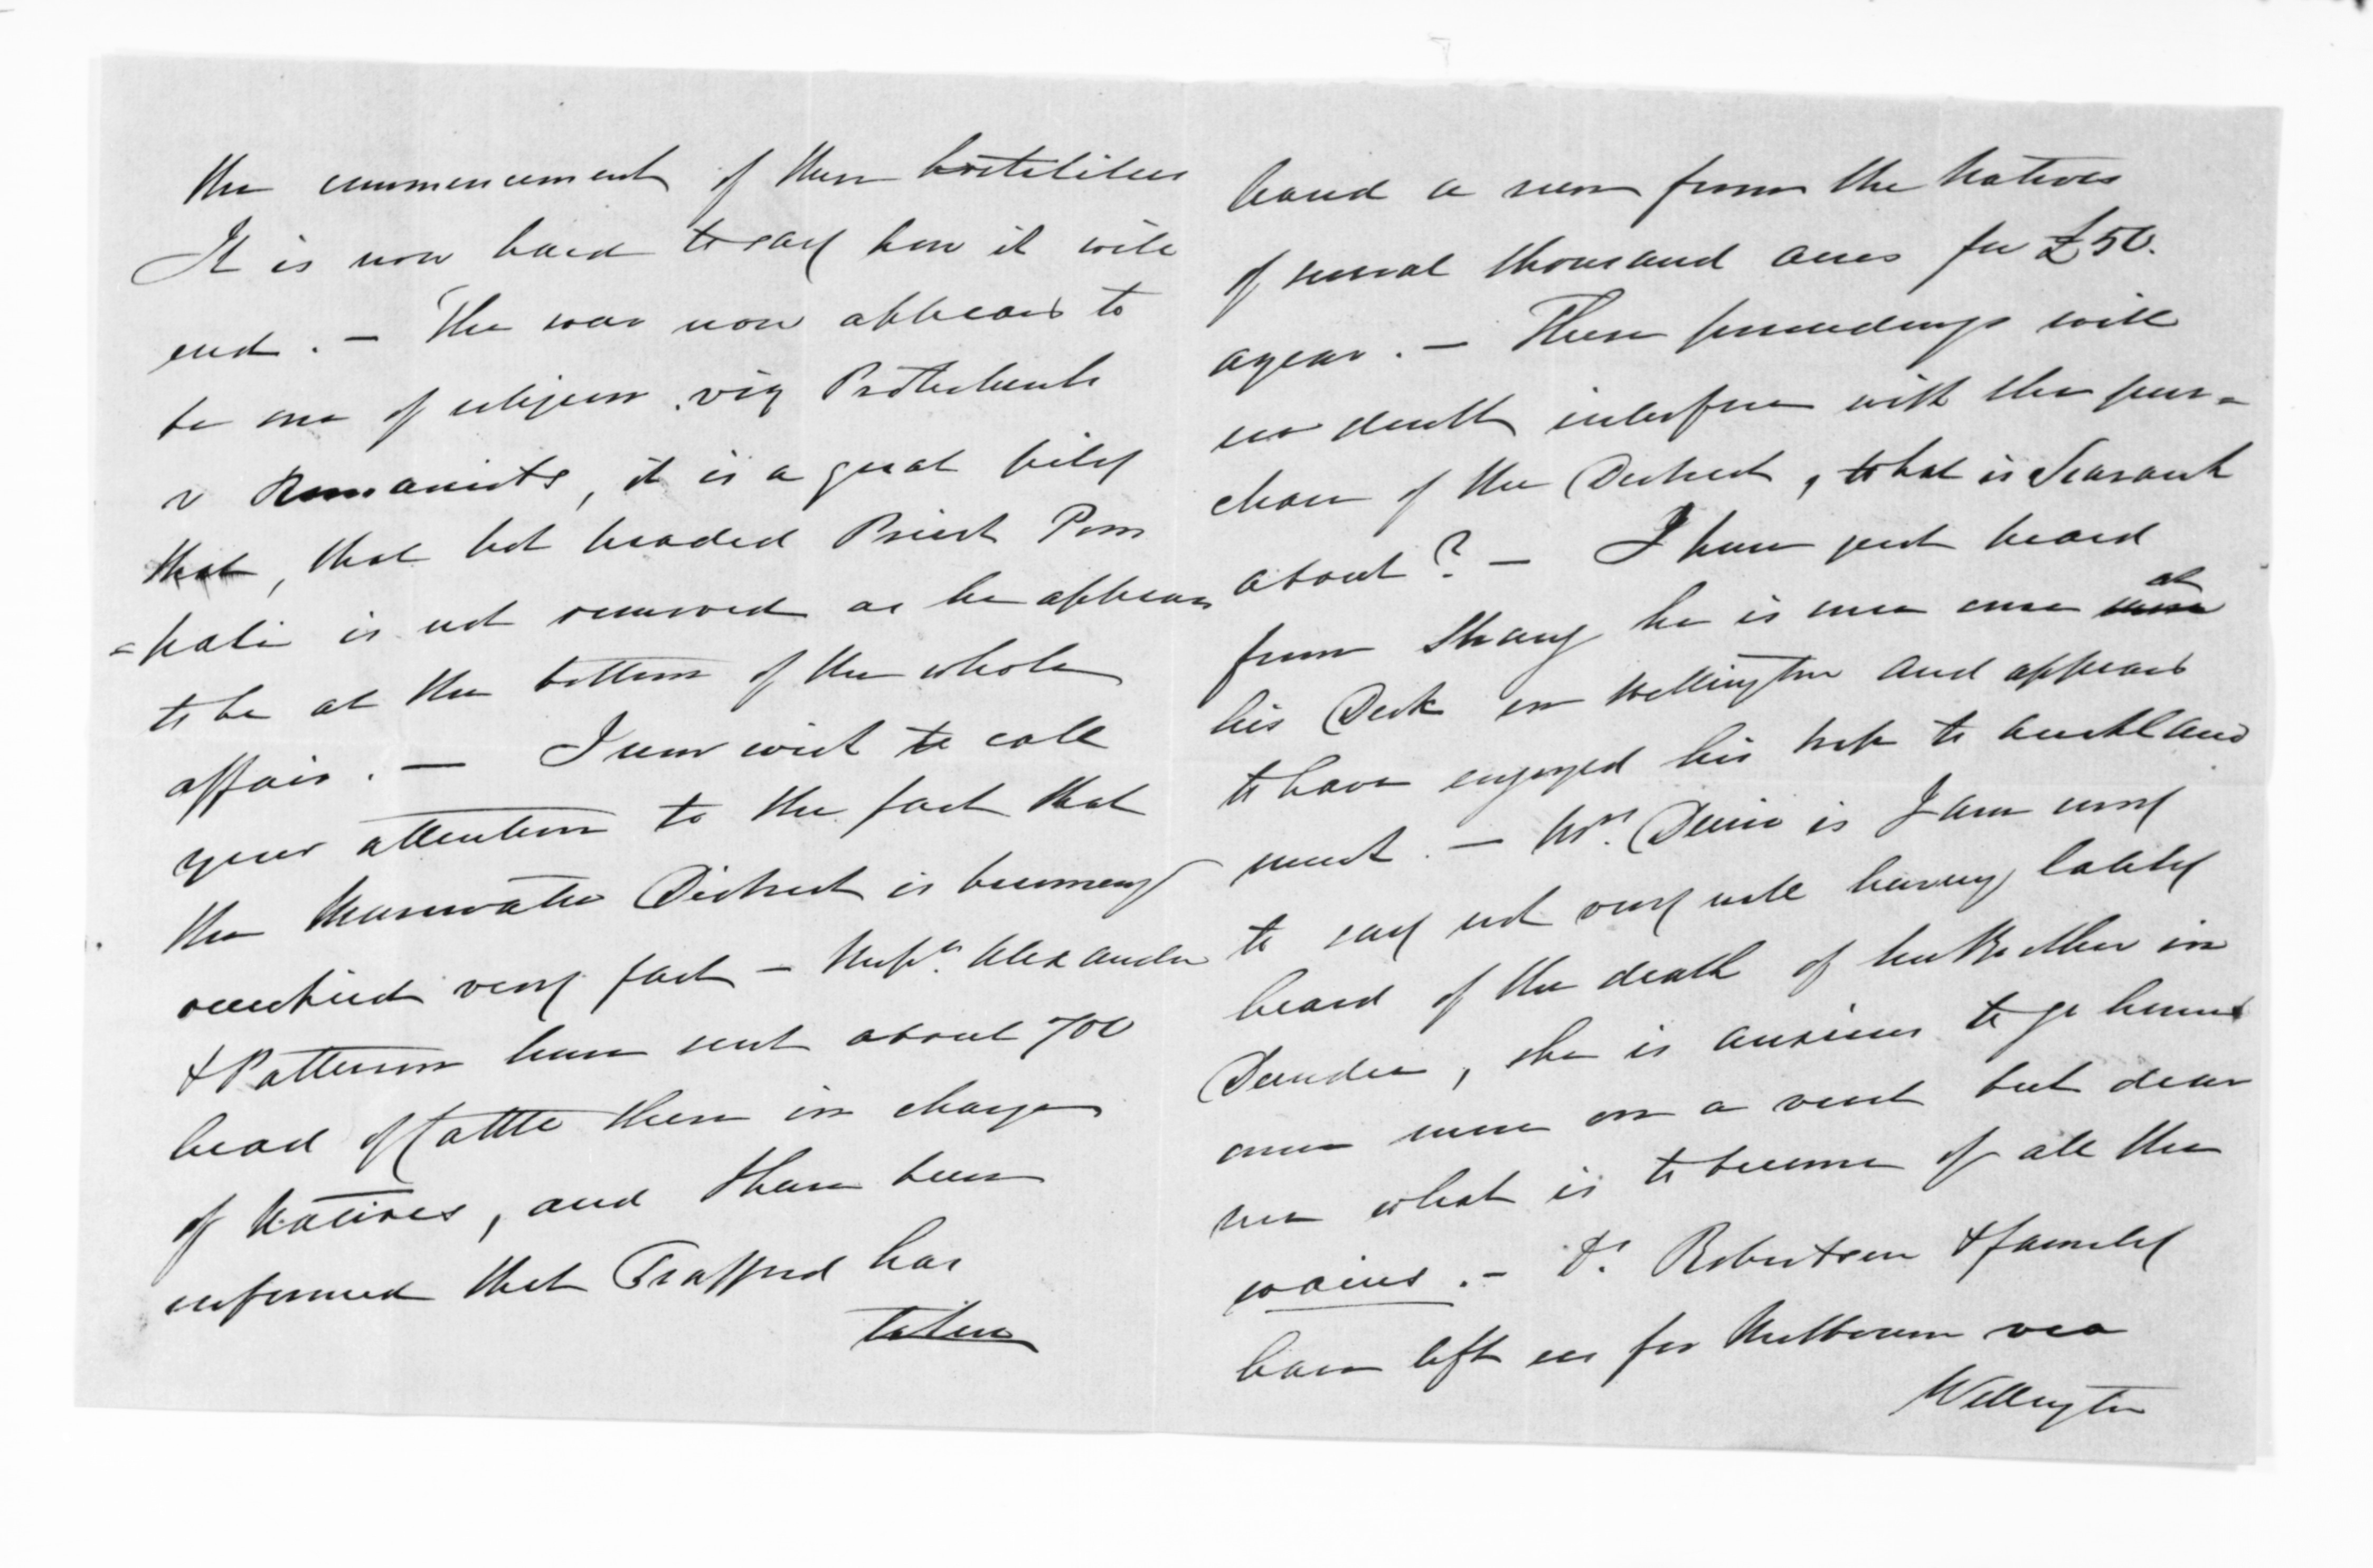 the commencement of these hostilities
It is now hard to say how it will
end. — The war now appears to
be one of religion, viz Protestants
v Romanists, it is a great pity
that, that hot headed Priest Pom
=pali is not removed as he appears
to be at the bottom of the whole
affair. — I now wish to call
your attention to the fact that
the Manawatu District is becoming
occupied very fast — Messrs. Alexander
& Patterson have sent about 700
head of Cattle there in charge
of Natives, and I have been
informed that Trafford has
taken
hand a run from the Natives
of several thousand acres for £50.
a year. — These proceedings will
no doubt interfere with the pur=
chase of the District, what is Searancke
about? — I have just heard
from Strang he is now once more at
his Desk in Wellington and appears
to have enjoyed his trip to Auckland
much. — Mrs. is I am sorry
to say not very well having lately
heard of the death of her Mother in
Dundee, she is anxious to go home
once more on a visit but dear
me what is to become of all the
wains. — Dr. Robertson & family
have left us for Melbourne via
Wellington